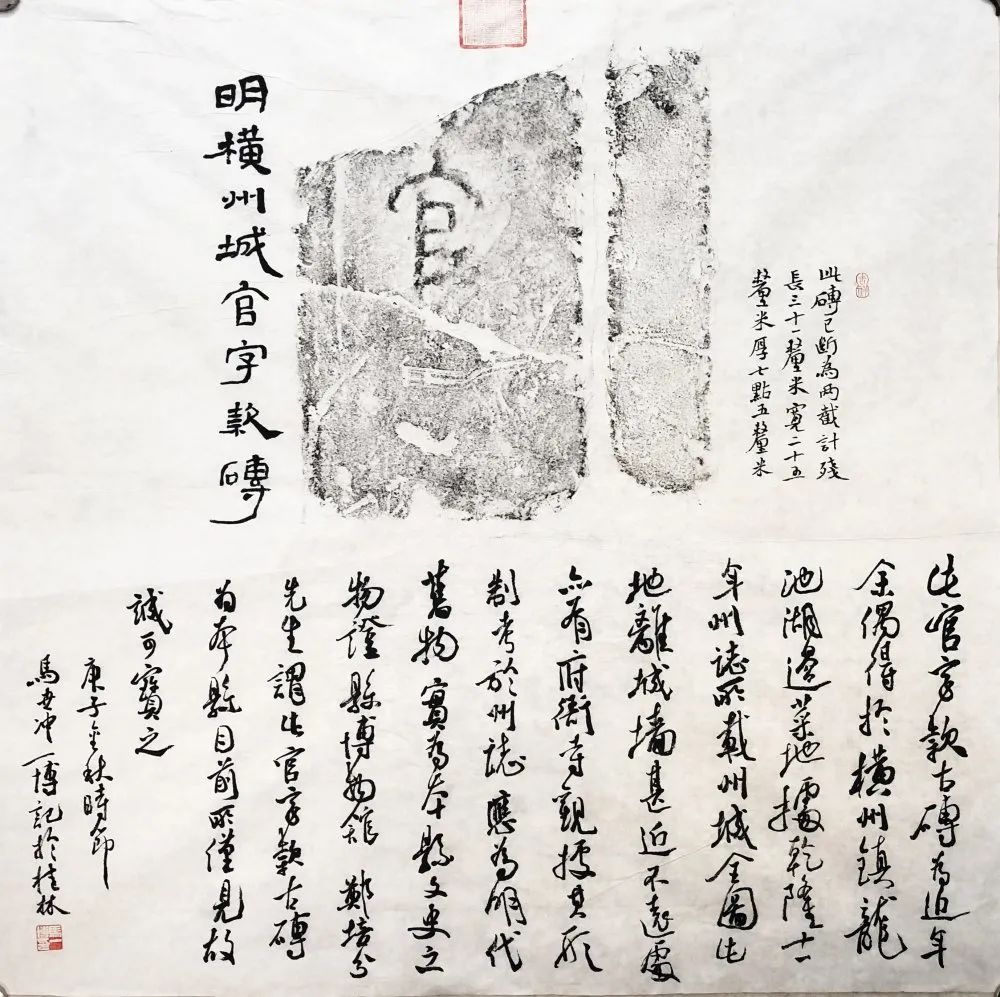 明橫州城官字款磚
官
此磚已斷為兩截計殘
長三十一釐米寬二十五
釐米厚七點五釐米
此官字款古磚為近年
余偶得於橫州鎮龍
池湖邊菜地據乾隆十一
年州誌所載州城全圖此
地離城墻甚近不遠處
亦有府衙寺觀據其形
制考於州誌應為明代
舊物實為本縣文史之
物證縣博物館鄭培分
先生謂此官字款古磚
為本縣目前所僅見故
誠可寶之
庚子金秋時節
馬世冲一博記於桂林